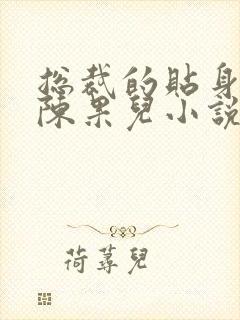 總裁的貼身
陳果兒小說
荷蕁兒